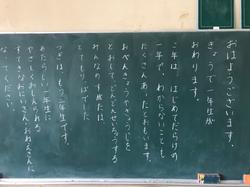 おはようございます。
きょうで一年生が
おわります。
この一年は、はじめてだらけの
一年で、わからないことも
たくさんあったとおもいます。
おべんきょうやぎょうじを
とおして、どんどんせいちょうする
みんなのすがたは、
とてもりっぱでした。
つぎは、もう二年生です。
あたらしい一年生に
やさしくおしえられる
すてきなおにいさん・おねえさんに
なってください。